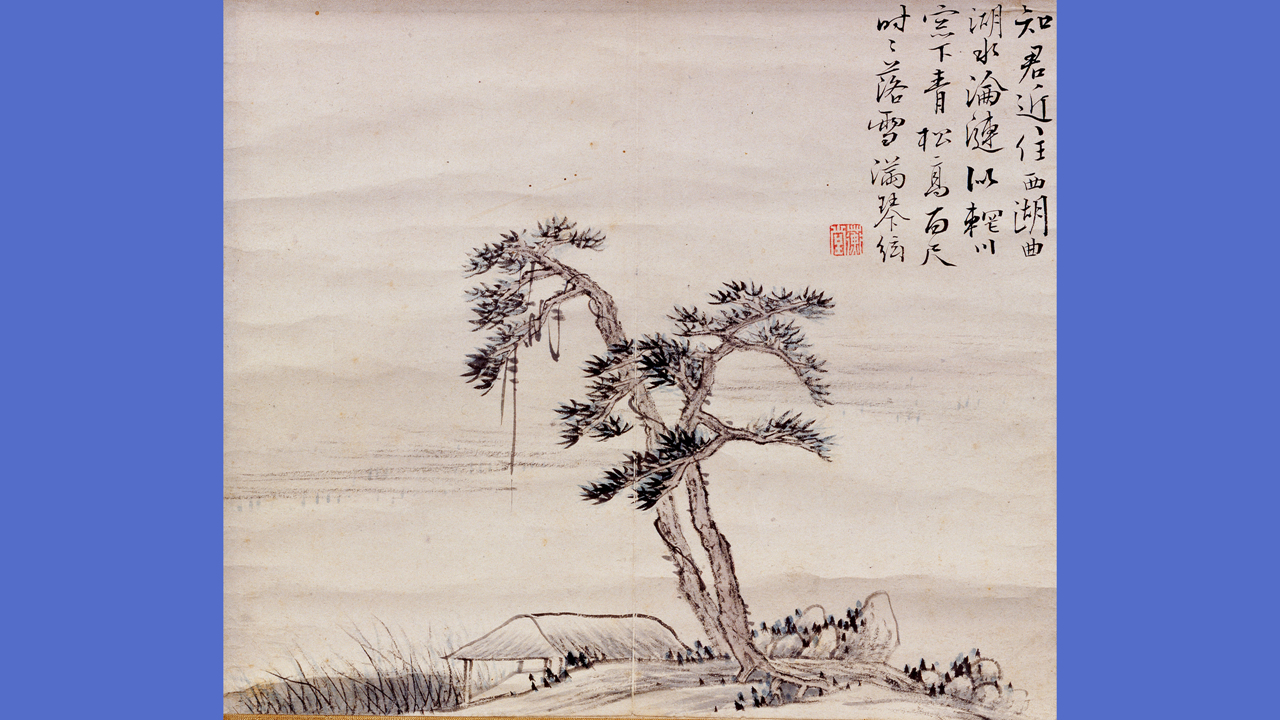 知君近住西湖曲
湖水淪漣似輞川
窓下青松高百尺
时〻落雪満琴絃